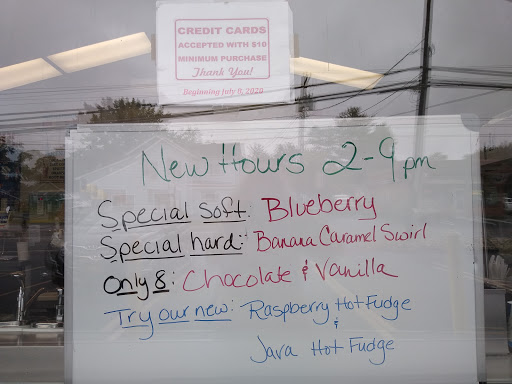 CREDIT CARDS
ACCEPTED WITH $10
MINIMUM PURCHASE
Thank You!
Beginning July 6, 2020
New Hours 2-9 pm
Special Soft: Blueberry
Special hard: Banana Caramel Swirl
Only 8: Chocolate & Vanilla
Try our new: Raspberry Hot Fudge
&
Java Hot Fudge